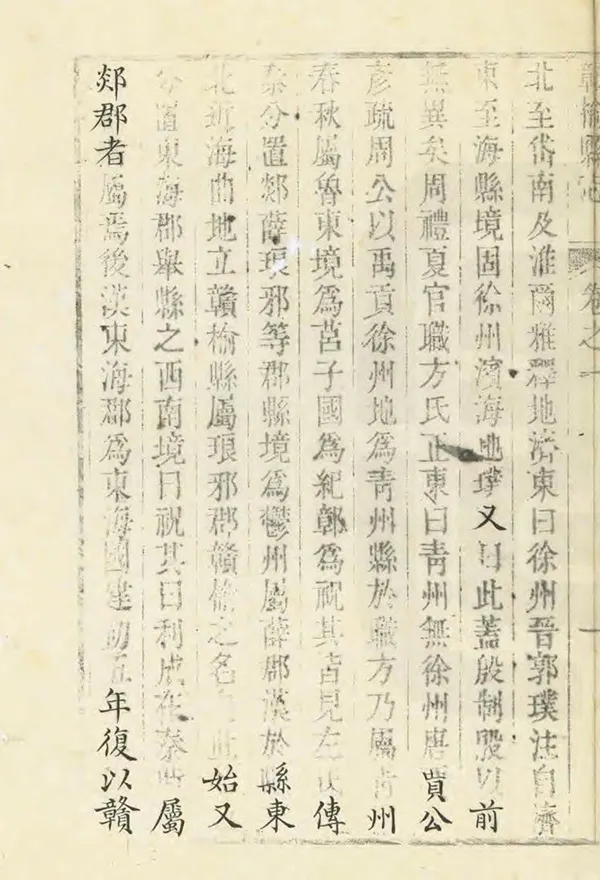 贛榆縣志　卷之一
北至岱南及淮爾雅釋地濟東曰徐州晉郭璞注自濟
東至海縣境固徐州濱海地璞又曰此蓋殷制殷以前
無異矣周禮夏官職方氏正東曰青州無徐州唐賈公
彥疏周公以禹貢徐州地為青州縣於職方乃屬青州
春秋屬魯東境為莒子國為紀鄣為祝其皆見左氏傳
秦分置郯薛琅邪等郡縣境為鬱州屬薛郡漢於縣東
北近海曲地立贛榆縣屬琅邪郡贛榆之名此始又
分置東海郡舉縣之西南境曰祝其曰利成在秦屬
郯郡者屬焉後漢東海郡為東海國建初五年復以贛